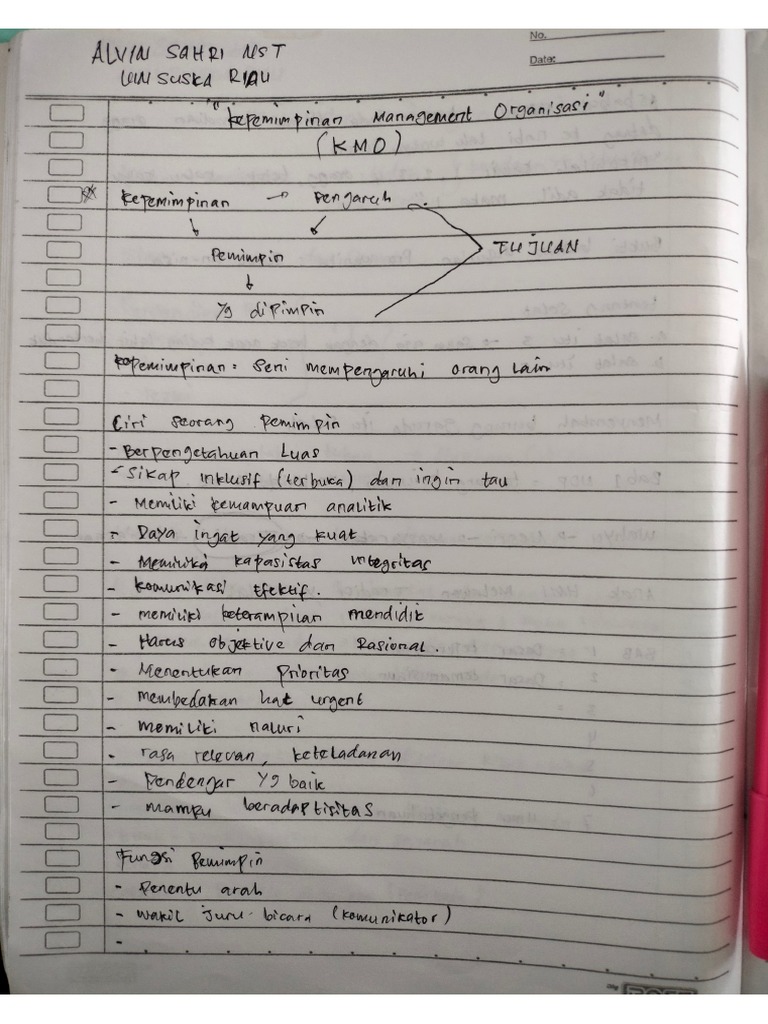 No.
Date:
ALVIN SAHRI NST
UIN SUSKA RIAU
"Kepemimpinan Management Organisasi"
(KMO)
Kepemimpinan → Pengaruh
Pemimpin
TUJUAN
Yg dipimpin
Kepemimpinan = Seni mempengaruhi orang lain
Ciri seorang pemimpin
- Berpengetahuan Luas
- Sikap inklusif (terbuka) dan ingin tau
- Memiliki kemampuan analitik
- Daya ingat yang kuat
- Memiliki kapasistas integritas
- Komunikasi Efektif.
- memiliki keterampilan mendidik
- Harus objektive dan Rasional.
- Menentukan prioritas
- membedakan hal urgent
- memiliki naluri
- rasa relevan, keteladanan
- Pendengar Yg baik
- mampu beradaptisitas
Fungsi Pemimpin
- Penentu arah
- wakil juru bicara (komunikator)
-